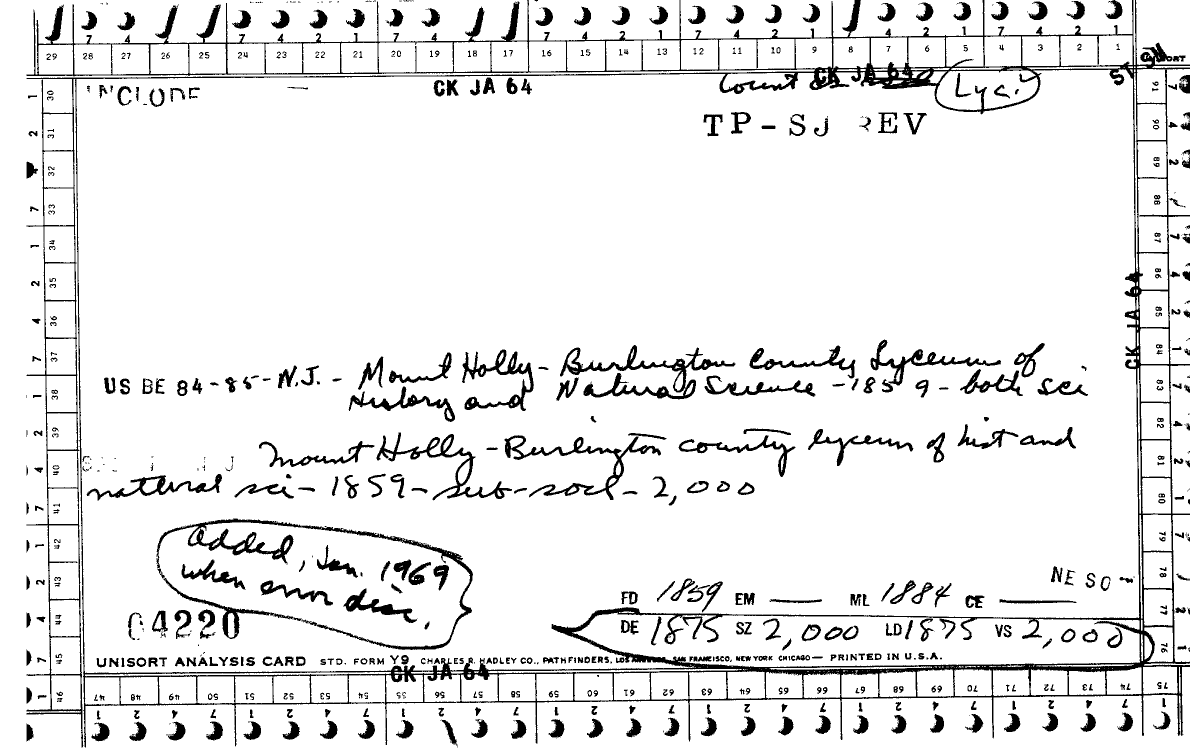 7 4 2 1 7 4 2 1 7 4 2 1 7 4 2 1 7 4 2 1
29 28 27 26 25 24 23 22 21 20 19 18 17 16 15 14 13 12 11 10 9 8 7 6 5 4 3 2 1
INCLUDE — CK JA 64 Count as CK JA 64 Lyc.
TP-SJ REV
CK JA 64
US BE 84-85-N.J. - Mount Holly-Burlington County Lyceum of
History and Natural Science -1859- both sci
Mount Holly-Burlington county lyceum of hist and
natural sci-1859-sub-socl-2,000
Added, Jan. 1969
when error disc.
04220
NE SO
FD 1859 EM — ML 1884 CE —
DE 1875 SZ 2,000 LD 1875 VS 2,000
UNISORT ANALYSIS CARD STD. FORM Y9 CHARLES R. HADLEY CO., PATHFINDERS, LOS ANGELES, SAN FRANCISCO, NEW YORK CHICAGO— PRINTED IN U.S.A.
CK JA 64
30 31 32 33 34 35 36 37 38 39 40 41 42 43 44 45 46
47 48 49 50 51 52 53 54 55 56 57 58 59 60 61 62 63 64 65 66 67 68 69 70 71 72 73 74 75
76 77 78 79 80 81 82 83 84 85 86 87 88 89 90 91